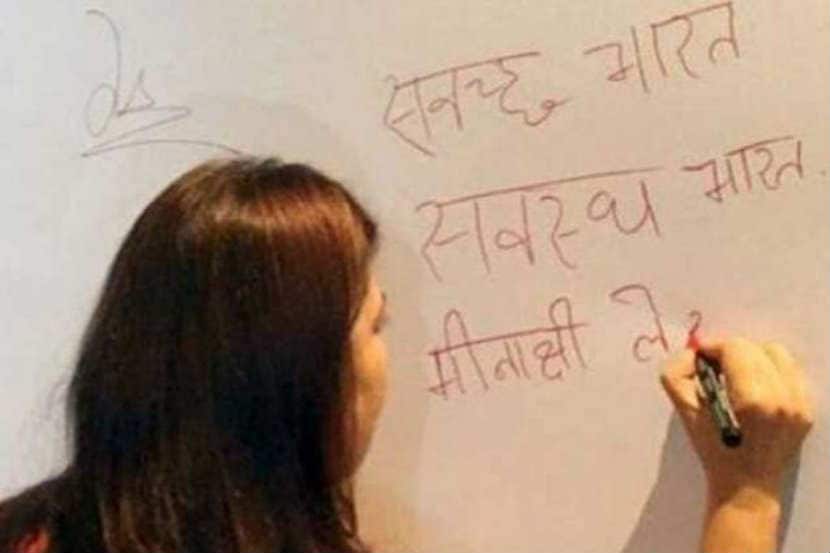 सवच्छ भारत
सवस्थ भारत.
मीनाक्षी ले